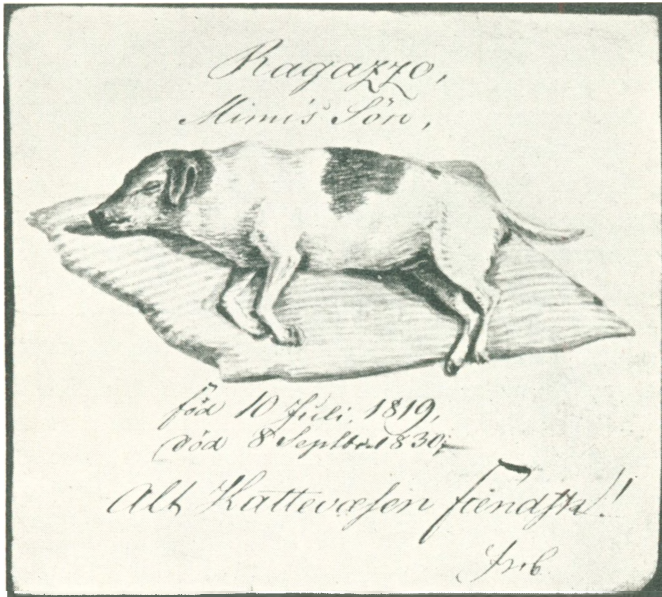 Ragazzo,
Mimi's Sön,
föd 10 Juli. 1819,
död 8 Septbr. 1830,
Alt Kattevæsen fiendsk!